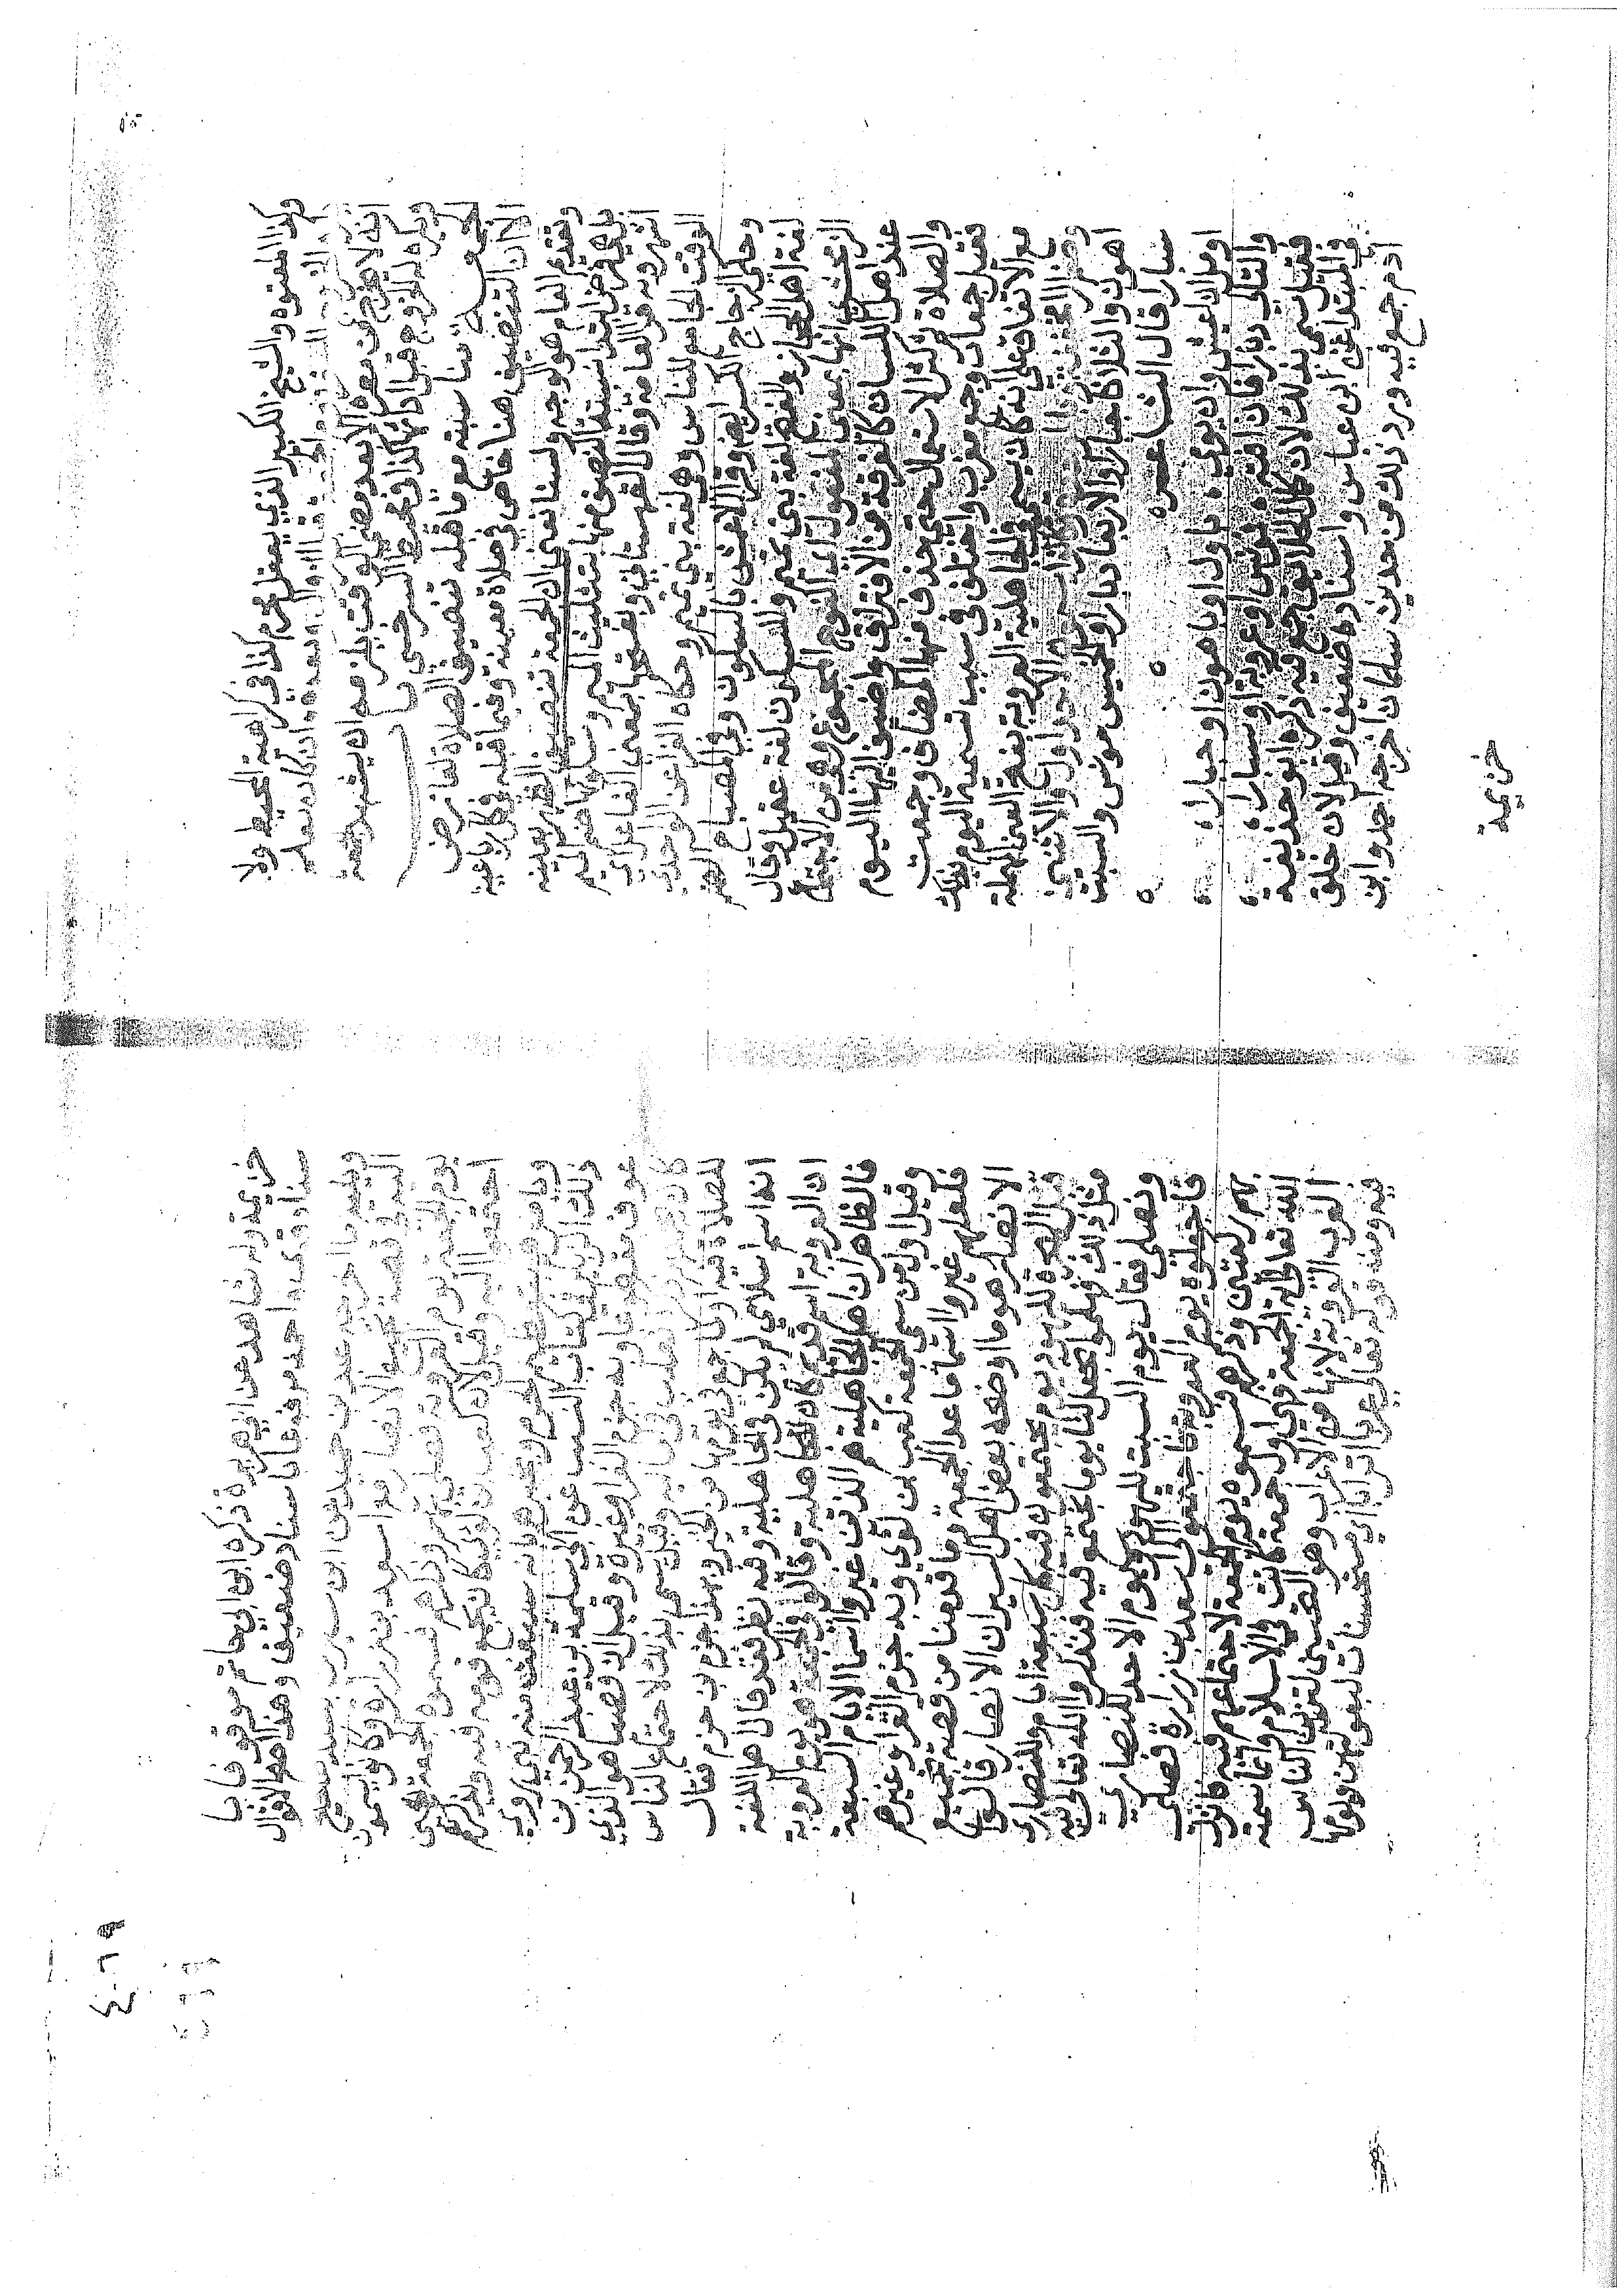 وكذا المعتوه والشيخ الكبير الذي يعقل محرم كذا في كراهية المحيط ولا
انه لا يخرج من مصره الا بعد مضي الوقت يلزمه ان يشهد الجمعة
ويكره له الخروج قبل ادائها كذا في محيط السرخسي
مناسبته مع ما قبله تنصيف الصلاة لعارض
الا ان التنصيف هنا خاص في صلاة معينة وفيما قبله في كل رباعية
وتقديم العام هو الوجه ولسنا نعني ان الجمعة تنصيف الظهر بعينه
بل هي فرض ابتداء نسبته النصف منها بتثليث الميم وسكونها ضم الميم
اشهر وبه قرأ العامة وقال القهستاني وبفتحها بمعنى الفاعل اي
الوقت الجامع للناس وهي لغة بني تميم وحكاه الفراء عن الواحدي
وحكى الزجاج الكسر ايضا وقرأ الاعمش بالسكون وفي المصباح الضم
لغة اهل الحجاز والفتح لغة بني تميم والسكون لغة عقيل وقال
الزمخشري انها بمعنى المفعول اي الفوج المجموع وهو من الاجتماع
عند اهل اللسان كالفرقة من الافتراق واضيف اليها اليوم
والصلاة ثم كثر الاستعمال حتى حذف منها المضاف وجمعت
فقيل جمعات وجمع مفرد واختلف في سبب تسمية اليوم بذلك
مع الاتفاق على انه كان يسمى في الجاهلية العروبة بفتح العين المهملة
وضم الراء
اهون والثلاثاء جبار والاربعاء دبار والخميس مونس والسبت
شيار قال الشاعر
اومل ان اعيش وان يومي باول او باهون او جبار
والتالي دبار فان افته فمونس او عروبة او شيار
فقيل سمي بذلك لان كمال الخلايق جمع فيه ذكره ابو حذيفة
في المبتدا عن ابن عباس واسناده ضعيف وقيل لان خلق
ادم جمع فيه ورد ذلك من حديث سلمان اخرجه احمد وابن
خزيمة
خزيمة وله شاهد عن ابي هريرة ذكره ابن ابي حاتم موقوفا با
سناد قوي واحمد مرفوعا باسناد ضعيف وهذا اصح الاقوال
ويليه ما اخرجه عبد بن حميد عن ابن سيرين بسند صحيح
اليه في قصة تجميع الانصار مع اسعد بن زرارة وكانوا يسمون
يوم الجمعة يوم العروبة فصلى بهم وذكرهم فسموه الجمعة حين
اجتمعوا اليه وقيل لان كعب بن لؤي كان يجمع قومه فيه ويذكرهم
ويامرهم بتعظيم الحرم ويخبرهم بانه سيبعث منه نبي روى
ذلك الزبير في كتاب النسب عن ابي سلمة بن عبد الرحمن بن
عوف مقطوعا وبه جزم الفراء وغيره وقيل ان قصيا هو الذي
كان يجمعهم ذكره ثعلب في اماليه وقيل سمي بذلك لاجتماع الناس
للصلاة فيه او لما جمع في يومها من الخير وبهذا جزم بن حزم فقال
انه اسم اسلامي لم يكن في الجاهلية وفيه نظر فقد قال اهل اللغة
ان العروبة اسم قديم كان للجاهلية وقالوا في الجمعة هو يوم العروبة
فالظاهر ان اهل الجاهلية هم الذين غيروا اسما الايام السبعة
وقيل اول من سمى الجمعة كعب بن لؤي وبه جزم الفراء وغيره
فلعلهم غيروا اسماء ما عدا الجمعة وما قدمنا من قصة تجميع
الانصار هو ما اوضحه بعض اهل السير ان الانصار قالوا
قبل الهجرة لليهود يوم يجتمعون فيه كل سبعة ايام وللنصارى
مثل ذلك فهلموا نجعل لنا يوما نجتمع فيه فنذكر الله تعالى فيه
ونصلي فقال يوم السبت لليهود ويوم الاحد للنصارى
فاجعلوه يوم العروبة فاجتمعوا الى اسعد بن زرارة فصلى
بهم ركعتين وذكرهم فسموه يوم الجمعة لاجتماعهم فيه فانزل
الله تعالى اية الجمعة فهي اول جمعة كانت في الاسلام وانما سمته
العرب العروبة لانها من الاعراب وهو التحسين لتزين الناس
فيه ومنه قوله تعالى عربا اترابا اي متحسنات لبعولتهن ويوما